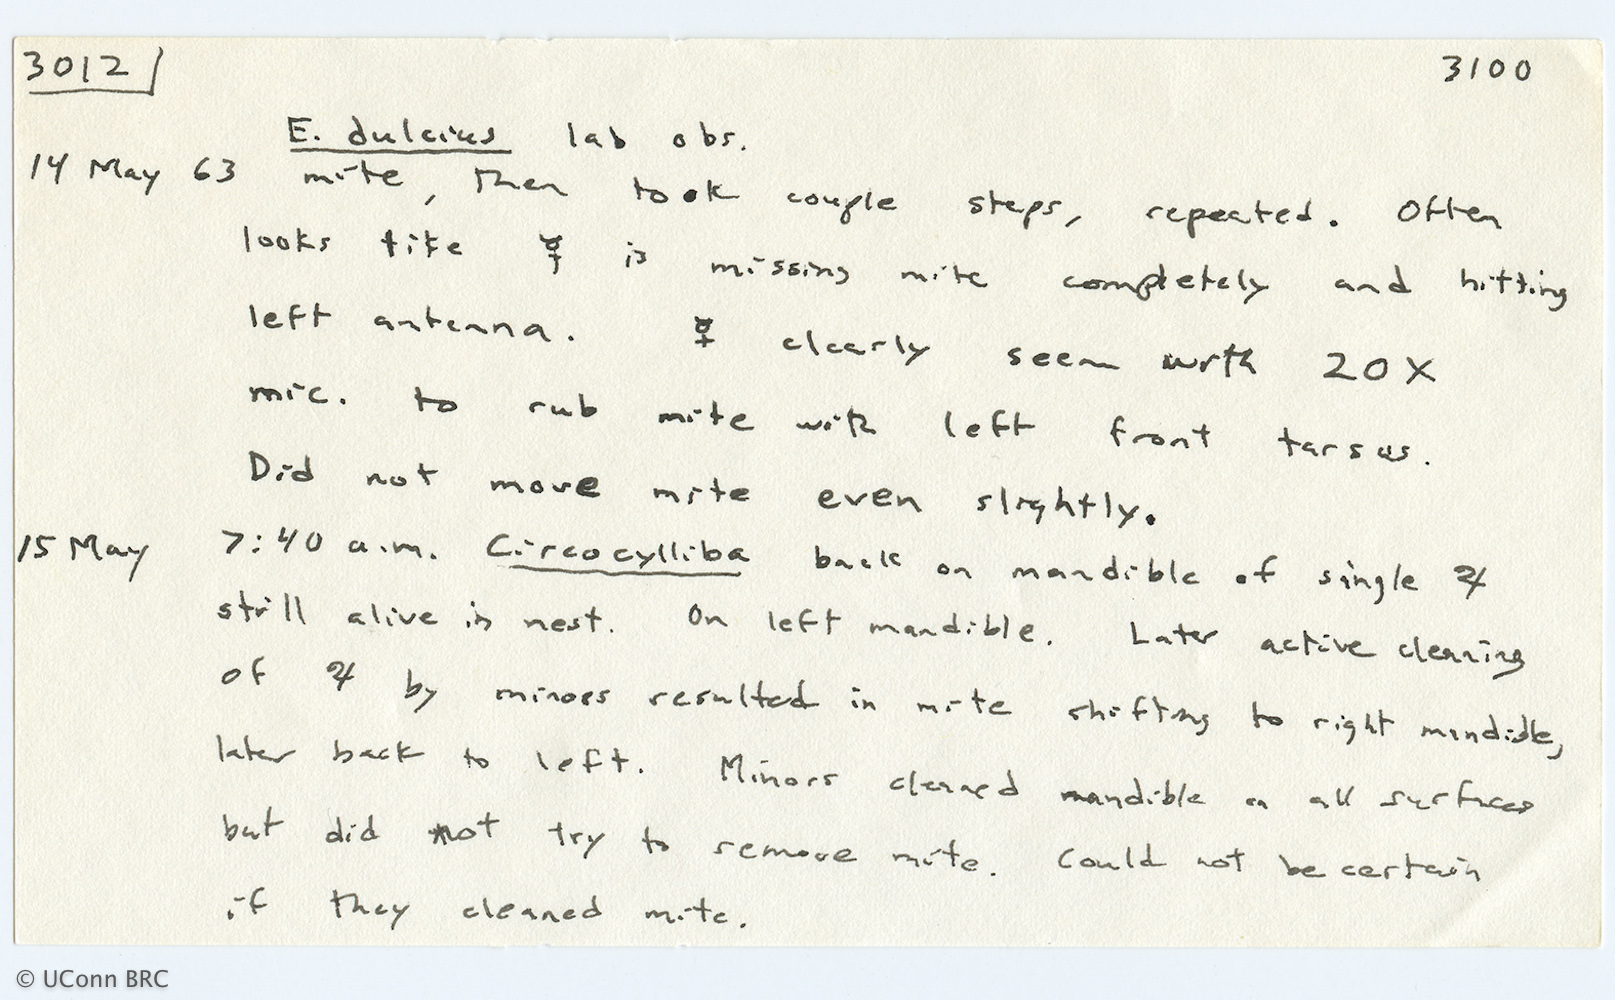 3012 3100
E. dulcius lab obs.
14 May 63 mite, then took couple steps, repeated. Often
looks like ☿ is missing mite completely and hitting
left antenna. ☿ clearly seen with 20X
mic. to rub mite with left front tarsus.
Did not move mite even slightly.
15 May 7:40 a.m. Circocylliba back on mandible of single ♃
still alive in nest. On left mandible. Later active cleaning
of ♃ by minors resulted in mite shifting to right mandible,
later back to left. Minors cleaned mandible on all surfaces
but did not try to remove mite. Could not be certain
if they cleaned mite.
© UConn BRC